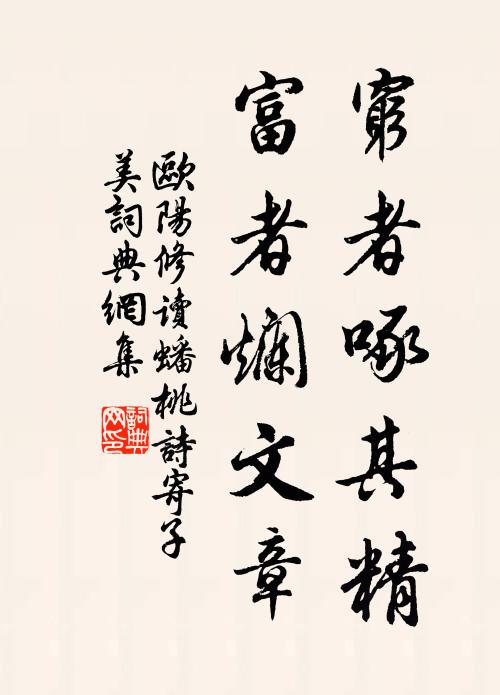 窮者啄其精
富者爛文章
歐陽修讀蟠桃詩寄子
美詞典網集
詞典网印